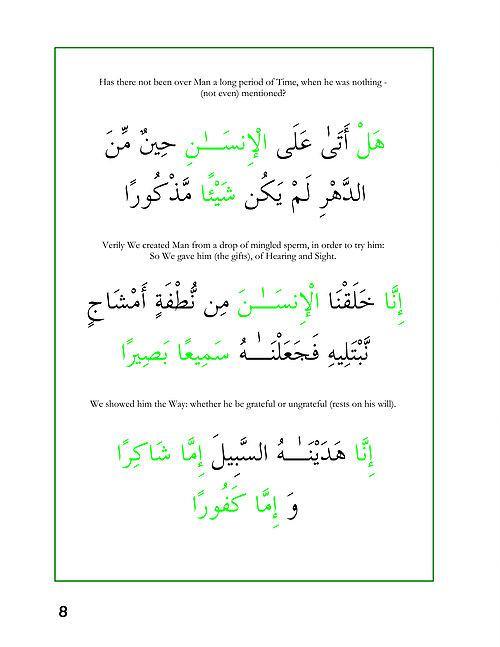 Has there not been over Man a long period of Time, when he was nothing -
(not even) mentioned?
هَلْ أَتَىٰ عَلَى الْإِنسَـٰنِ حِينٌ مِّنَ
الدَّهْرِ لَمْ يَكُن شَيْئًا مَّذْكُورًا
Verily We created Man from a drop of mingled sperm, in order to try him:
So We gave him (the gifts), of Hearing and Sight.
إِنَّا خَلَقْنَا الْإِنسَـٰنَ مِن نُّطْفَةٍ أَمْشَاجٍ
نَّبْتَلِيهِ فَجَعَلْنَـٰهُ سَمِيعًا بَصِيرًا
We showed him the Way: whether he be grateful or ungrateful (rests on his will).
إِنَّا هَدَيْنَـٰهُ السَّبِيلَ إِمَّا شَاكِرًا
وَ إِمَّا كَفُورًا
8